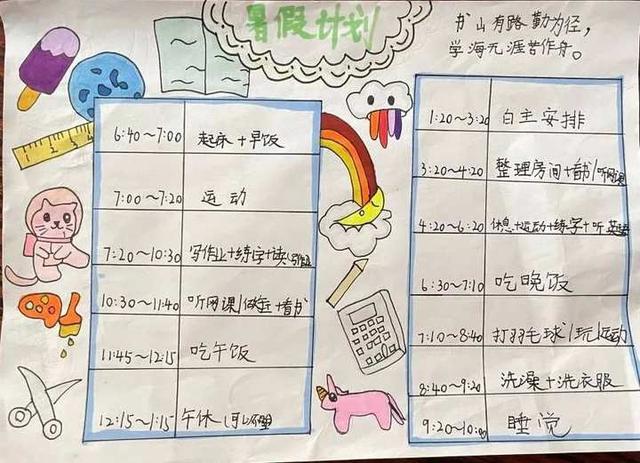 暑假计划
书山有路勤为径，
学海无涯苦作舟。
6:40~7:00 起床+早饭
7:00~7:20 运动
7:20~10:30 写作业+练字+读
10:30~11:40 听网课/做 +看书
11:45~12:15 吃午饭
12:15~1:15 午休（可以不
1:20~3:20 自主安排
3:20~4:20 整理房间+看书/听网课
4:20~6:20 休息+运动+练字+听英语
6:30~7:10 吃晚饭
7:10~8:40 打羽毛球/玩/运动
8:40~9:20 洗澡+洗衣服
9:20~10:00 睡觉